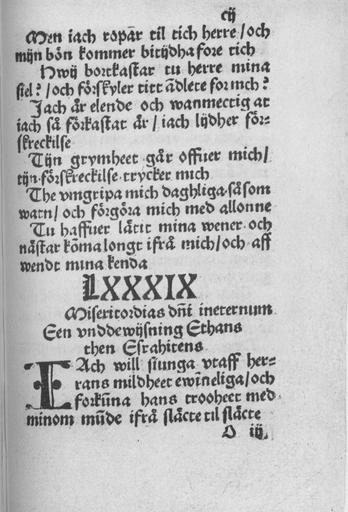 cij
Men iach ropar til tich herre/och
mijn bön kommer bitijdha fore tich
Hwij bortkastar tu herre mina
siel?/och förskyler titt ädlete for mich?
Jach är elende och wanmectig at
iach så förkastat är/iach lijdher för=
skreckilse
Tijn grymheet går offuer mich/
tijn förskreckilse trycker mich
The vmgripa mich daghliga såsom
watn/och förgöra mich med allonne
Tu haffuer låtit mina wener och
nästar kõma longt ifrå mich/och aff
wendt mina kenda
LXXXIX
Misericordias dñi ineternum
Een vnddewijsning Ethans
then Esrahitens
IAch will siunga vtaff her=
rans mildheet ewĩneliga/och
forkũna hans trooheet med
minom mũde ifrå släcte til släcte
O iij